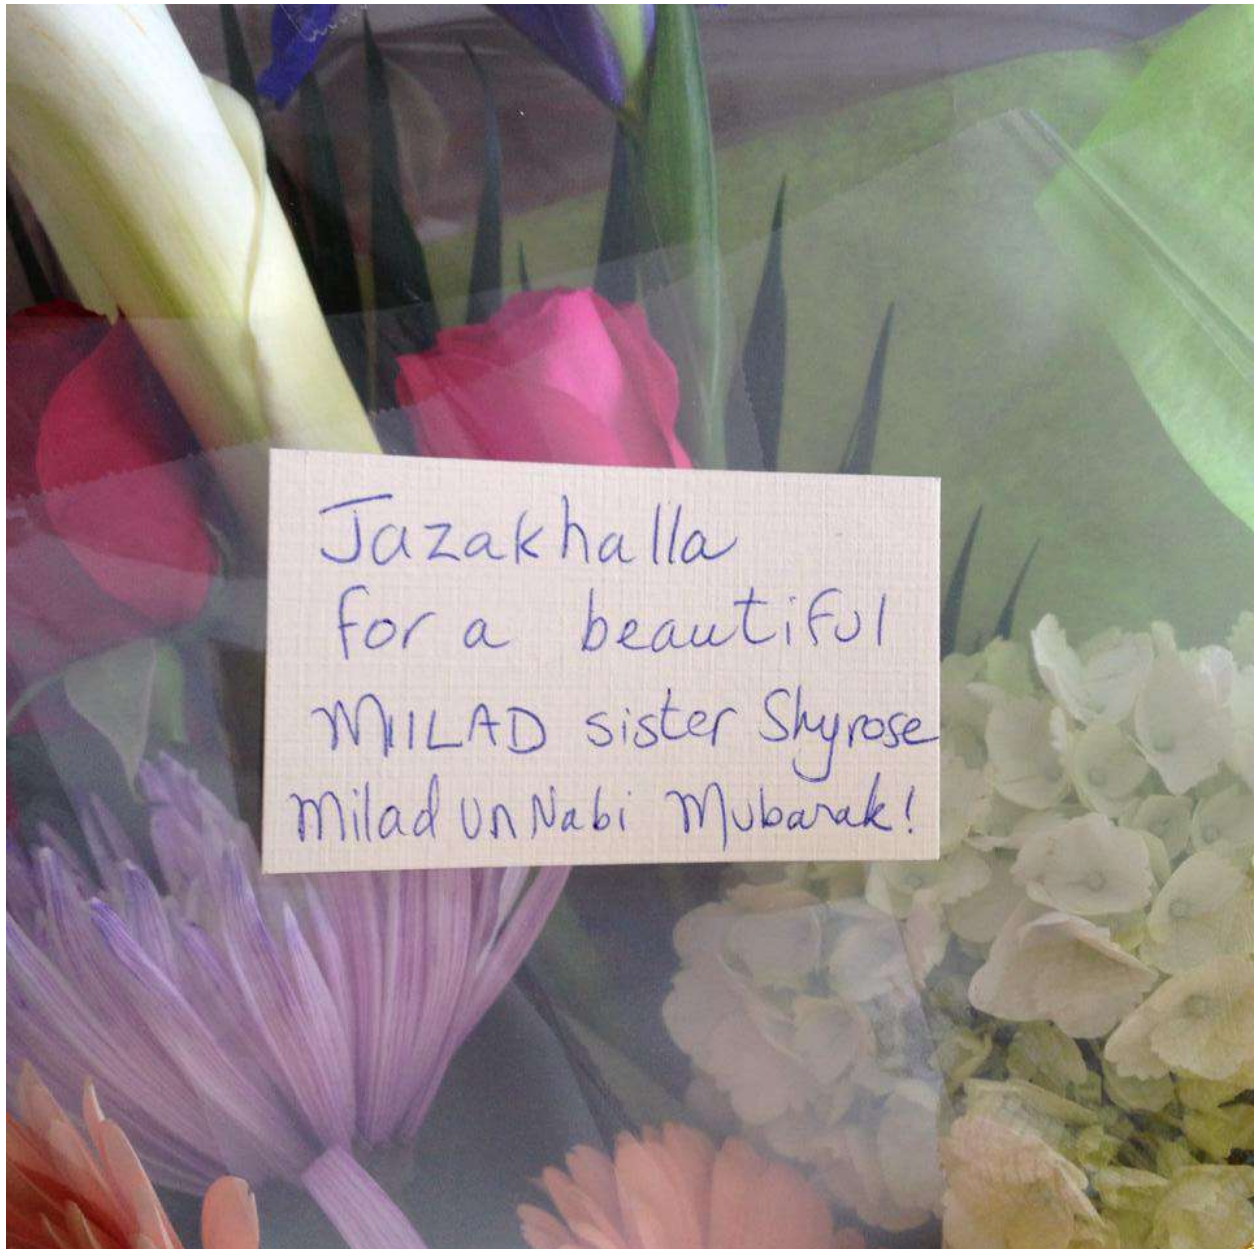 Jazakhalla
for a beautiful
MIILAD sister Shyrose
Milad un Nabi Mubarak!